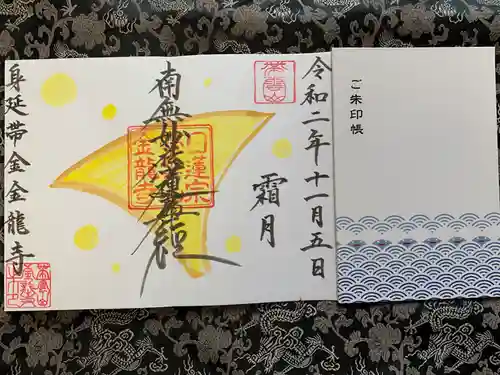 ご朱印帳
令和二年十一月五日
霜月
南無妙法蓮華経
日蓮宗
金龍寺
身延帯金金龍寺